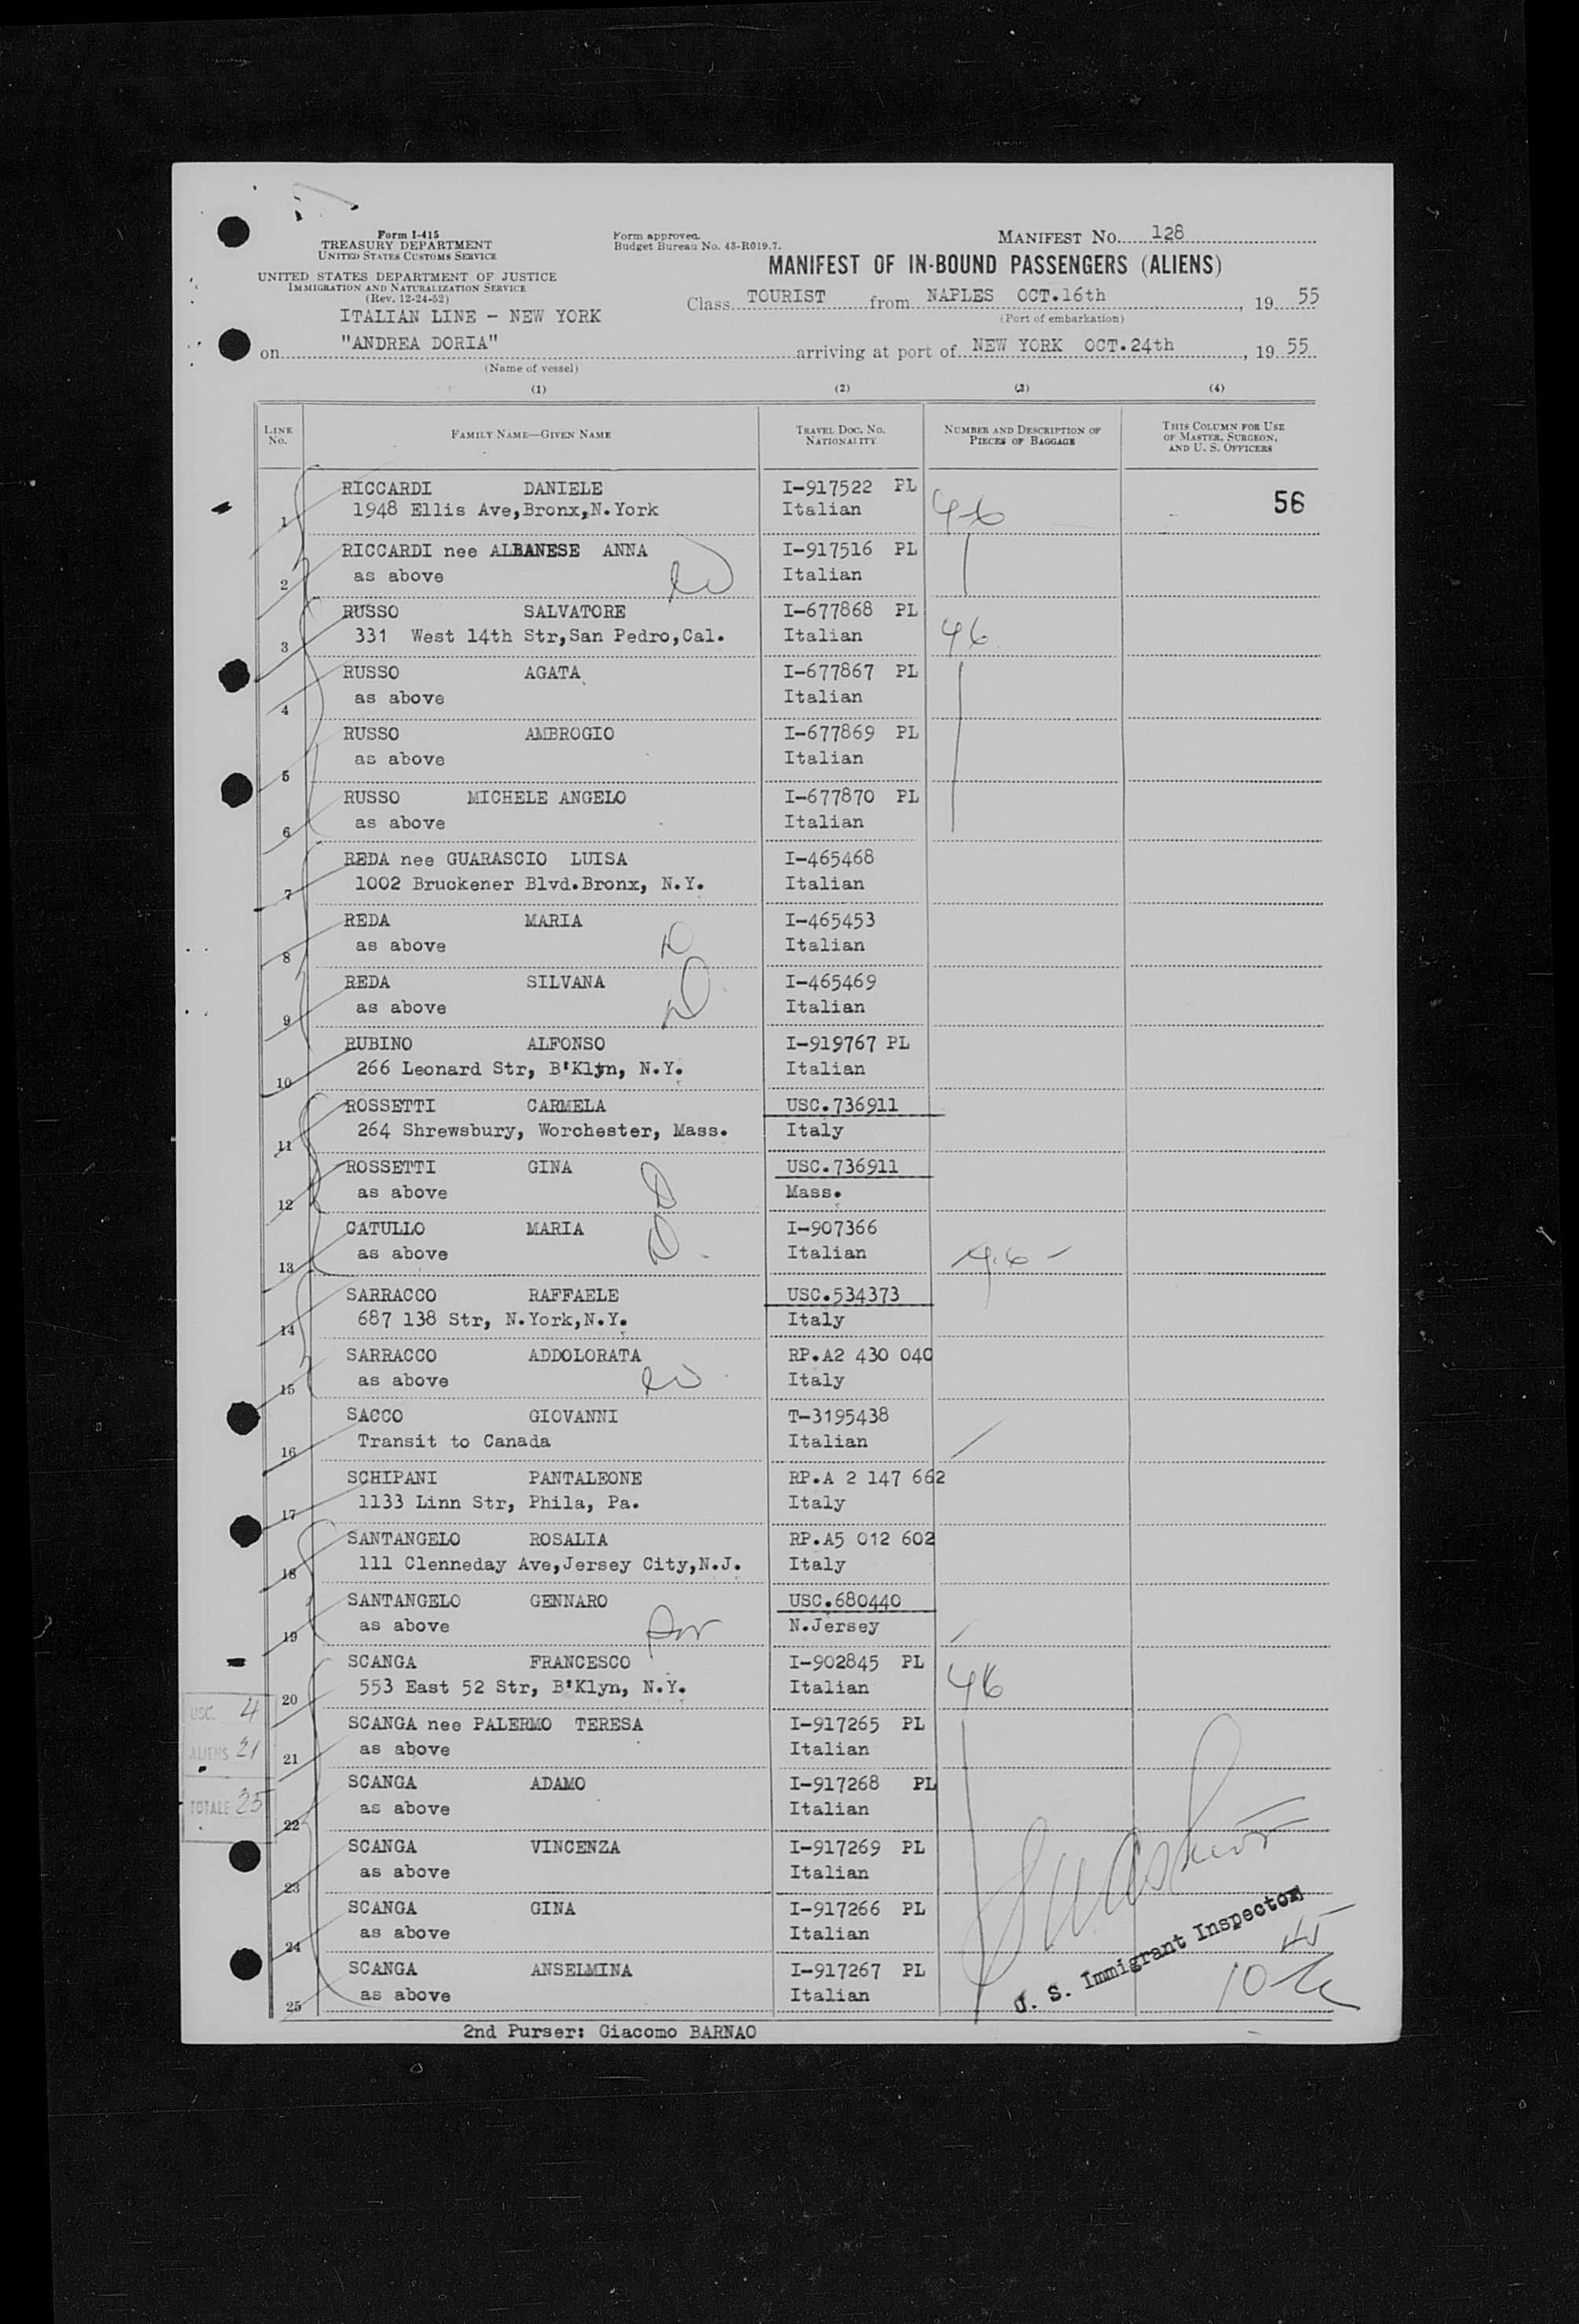 Form I-415
TREASURY DEPARTMENT
UNITED STATES CUSTOMS SERVICE
UNITED STATES DEPARTMENT OF JUSTICE
IMMIGRATION AND NATURALIZATION SERVICE
(Rev. 12-24-52)
Form approved.
Budget Bureau No. 43-R019.7.
MANIFEST NO. 128
MANIFEST OF IN-BOUND PASSENGERS (ALIENS)
Class TOURIST from NAPLES OCT.16th, 19 55
(Port of embarkation)
ITALIAN LINE - NEW YORK
on "ANDREA DORIA" arriving at port of NEW YORK OCT.24th, 19 55
(Name of vessel)
(1) (2) (3) (4)
LINE NO. FAMILY NAME—GIVEN NAME TRAVEL DOC. NO. NATIONALITY NUMBER AND DESCRIPTION OF PIECES OF BAGGAGE THIS COLUMN FOR USE OF MASTER, SURGEON, AND U. S. OFFICERS
RICCARDI DANIELE I-917522 PL 56
1 1948 Ellis Ave,Bronx,N.York Italian 46
RICCARDI nee ALBANESE ANNA I-917516 PL
2 as above Italian
RUSSO SALVATORE I-677868 PL
3 331 West 14th Str,San Pedro,Cal. Italian 46
RUSSO AGATA I-677867 PL
4 as above Italian
RUSSO AMBROGIO I-677869 PL
5 as above Italian
RUSSO MICHELE ANGELO I-677870 PL
6 as above Italian
REDA nee GUARASCIO LUISA I-465468
7 1002 Bruckener Blvd.Bronx, N.Y. Italian
REDA MARIA I-465453
8 as above Italian
REDA SILVANA I-465469
9 as above Italian
RUBINO ALFONSO I-919767 PL
10 266 Leonard Str, B'Klyn, N.Y. Italian
ROSSETTI CARMELA USC.736911
11 264 Shrewsbury, Worchester, Mass. Italy
ROSSETTI GINA USC.736911
12 as above Mass.
CATULLO MARIA I-907366
13 as above Italian 46-
SARRACCO RAFFAELE USC.534373
14 687 138 Str, N.York,N.Y. Italy
SARRACCO ADDOLORATA RP.A2 430 040
15 as above Italy
SACCO GIOVANNI T-3195438
16 Transit to Canada Italian
SCHIPANI PANTALEONE RP.A 2 147 662
17 1133 Linn Str, Phila, Pa. Italy
SANTANGELO ROSALIA RP.A5 012 602
18 111 Clenneday Ave,Jersey City,N.J. Italy
SANTANGELO GENNARO USC.680440
19 as above N.Jersey
SCANGA FRANCESCO I-902845 PL
20 553 East 52 Str, B'Klyn, N.Y. Italian 46
USC. 4
SCANGA nee PALERMO TERESA I-917265 PL
21 as above Italian
ALIENS 21
SCANGA ADAMO I-917268 PL
22 as above Italian
TOTALE 25
SCANGA VINCENZA I-917269 PL
23 as above Italian
SCANGA GINA I-917266 PL
24 as above Italian
SCANGA ANSELMINA I-917267 PL
25 as above Italian
U. S. Immigrant Inspector
2nd Purser: Giacomo BARNAO